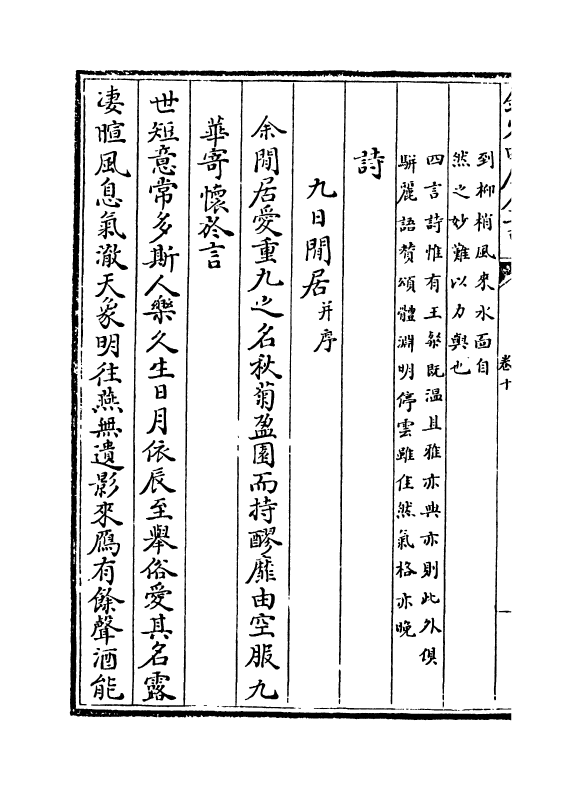 到柳梢風來水面自
然之妙難以力與也
四言詩惟有王粲既溫且雅亦典亦則此外俱
駢麗語贊頌體淵明停雲雖佳然氣格亦晚
詩
九日閒居并序
余閒居愛重九之名秋菊盈園而持醪靡由空服九
華寄懷於言
世短意常多斯人樂久生日月依辰至舉俗愛其名露
凄暄風息氣澈天象明往燕無遺影來鴈有餘聲酒能
卷十